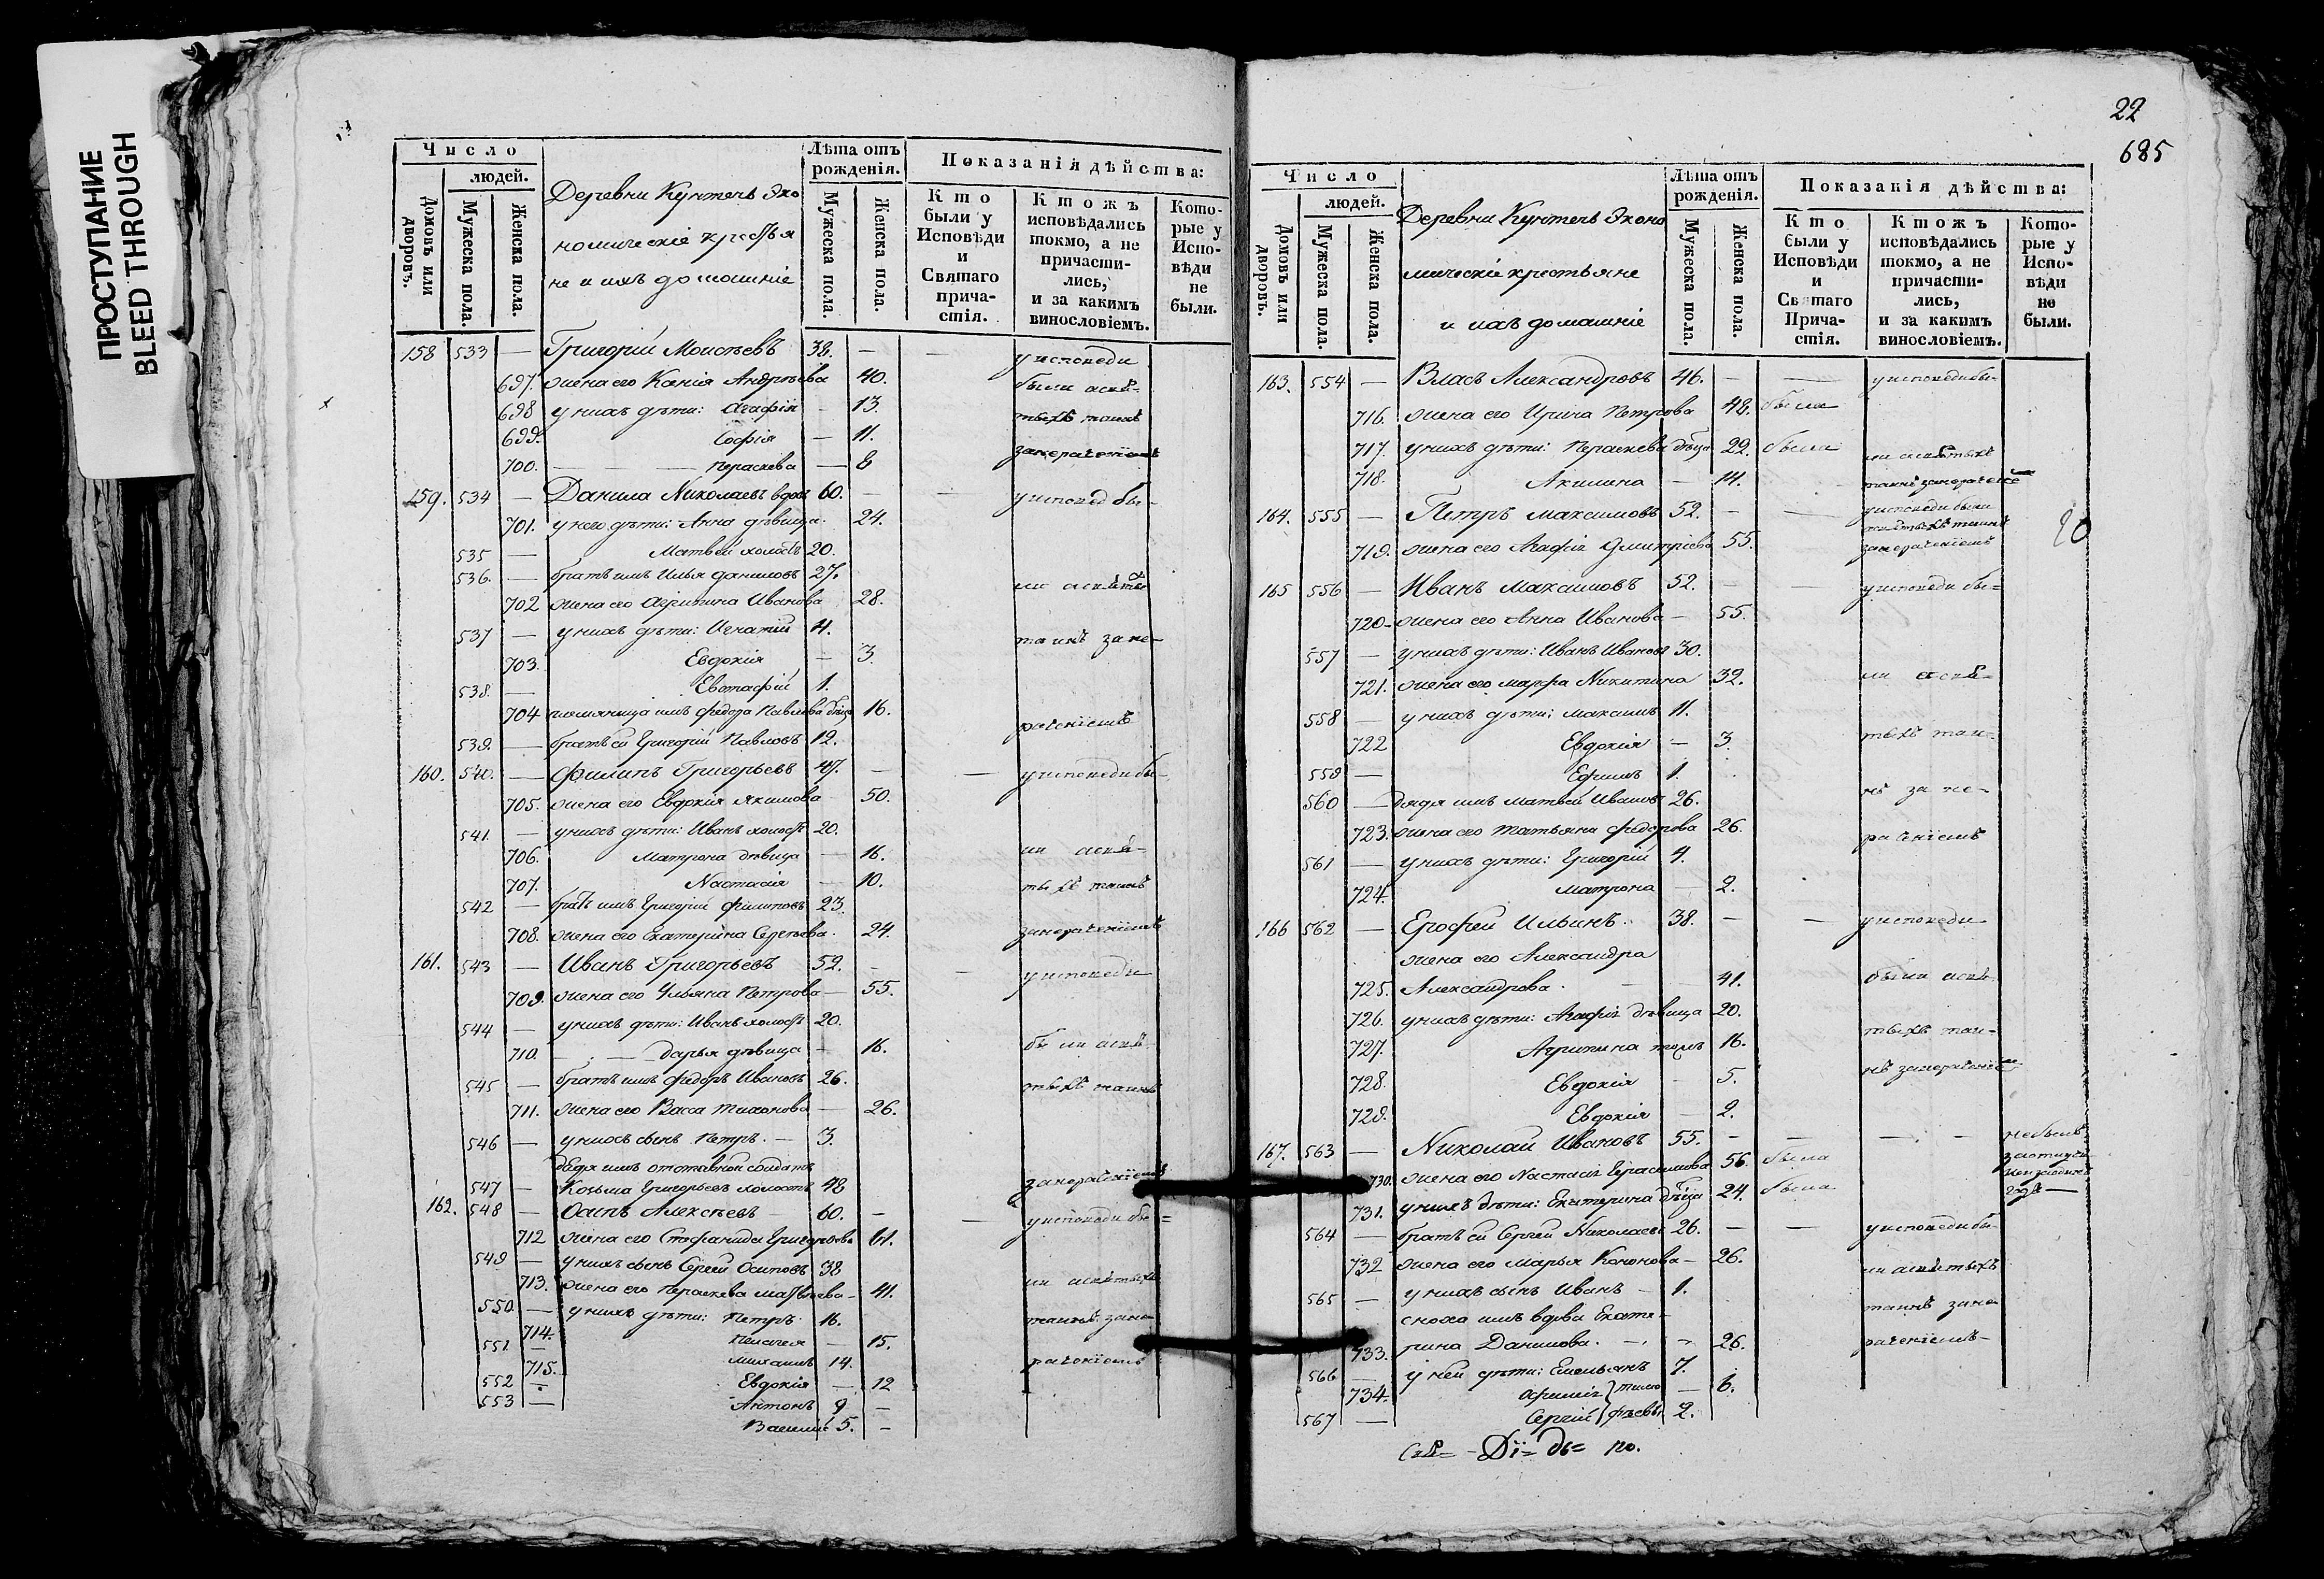 ПРОСТУПАНИЕ
BLEED THROUGH
Число
людей.
Домовъ или дворовъ.
Мужеска пола.
Женска пола.
Деревни Кунтечь Эко
номическіе крестья
не и ихъ домашніе
Лѣта отъ рожденія.
Мужеска пола.
Женска пола.
Показанія дѣйства:
Кто были у Исповѣди и Святаго причастія.
Ктожъ исповѣдались токмо, а не причастились, и за какимъ винословіемъ.
Которые у Исповѣди не были.
158 533 — Григорій Моисѣевъ 38. — — у исповеди
697. жена его Ксенія Андрѣева 40. были а свя-
698 у нихъ дѣти: Агафія — 13. тыхъ таинъ
699. Софія — 11. занераченіемъ
700. — Пераскева — 8
159. 534 — Данила Николаевъ вдовъ 60. — — у исповед бы-
701. у него дѣти: Анна дѣвица. 24.
535 — Матвей холостъ 20.
536. — братъ имъ Илья Даниловъ 27. ли а святы
702 жена его Агрипина Иванова 28.
537 — у нихъ дѣти: Игнатий 4. таинъ зане-
703. Евдокія — 3.
538. — Евстафій 1.
704 племянница имъ Федора Павлова дѣвица 16. раченіемъ
539. — братъ ей Григорій Павловъ 12.
160. 540. — Филипъ Григорьевъ 47. — — у исповеди бы-
705. жена его Евдокія Якимова 50.
541. — у нихъ дѣти: Иванъ холостъ 20.
706. Матрона девица — 16. ли а свя-
707. Настасія — 10. тыхъ таинъ
542 — братъ имъ Григорій Филиповъ 23.
708. жена его Екатерина Сергѣева. 24. занераченіемъ
161. 543 — Иванъ Григорьевъ 52. — — у исповеди
709. жена его Ульяна Петрова — 55.
544 — у нихъ дѣти: Иванъ холостъ 20.
710. — Дарья дѣвица — 16. были а свя-
545 — братъ имъ Федоръ Ивановъ 26. тыхъ таинъ
711. жена его Васса Тихонова — 26.
546 — у нихъ сынъ Петръ. — 3.
дядя имъ отставной солдатъ
547 — Козьма Григорьевъ холостъ 48 занераченіемъ
162. 548 — Осипъ Алексѣевъ 60. — — у исповеди бы=
712 жена его Стефанида Григорьева 61.
549 — у нихъ сынъ Сергей Осиповъ 38
713. жена его Пераскева Матвѣева — 41. ли а святыхъ
550. — у нихъ дѣти: Петръ. 16. таинъ зане-
714. Пелагея — 15.
551 — Михаилъ 14. раченіемъ
715. Евдокія — 12
552 — Антонъ 9 —
553 — Василій 5. —
22
685
Число
людей.
Домовъ или дворовъ.
Мужеска пола.
Женска пола.
Деревни Кунтечь Эконо
мическіе крестьяне
и ихъ домашніе
Лѣта отъ рожденія.
Мужеска пола.
Женска пола.
Показанія дѣйства:
Кто были у Исповѣди и Святаго Причастія.
Ктожъ исповѣдались токмо, а не причастились, и за какимъ винословіемъ.
Которые у Исповѣди не были.
163. 554 — Власъ Александровъ 46. — — у исповеди бы-
716. жена его Ирина Петрова 48. была
717. у нихъ дѣти: Пераскева дѣвца 22. была ли а святыхъ
718. Акилина — 14. таинъ занераченіе
164. 555 — Петръ Максимовъ 52. — — у исповеди были
а святыхъ таинъ
719. жена его Агафія Дмитріева 55. занераченіемъ
165 556 — Иванъ Максимовъ 52. — — у исповеди бы=
720 — жена его Анна Иванова — 55.
557 — у нихъ дѣти: Иванъ Ивановъ 30.
721. жена его Марфа Никитина 32. ли а свя-
558 — у нихъ дѣти: Максимъ 11.
722 Евдокія — 3. тыхъ таи-
559 — Ефимъ 1.
560 — дядя имъ Матвей Ивановъ 26. нъ за не-
723. жена его Татьяна Федорова 26. раченіемъ
561 — у нихъ дѣти: Григорій 4.
724. Матрона — 2.
166 562 — Ерофей Ильинъ. 38. — — у исповеди
жена его Александра
725. Александрова. — 41. были а свя-
726. у нихъ дѣти: Агафія дѣвица 20. тыхъ таи-
727. Агрипина тожъ 16.
728. Евдокія — 5. нъ занераченіе
729. Евдокія — 2.
167. 563 — Николай Ивановъ 55. — — — — не былъ
730. жена его Настасія Герасимова 56. была
731. у нихъ дѣти: Екатерина дѣвца 24. была годъ —
564 — братъ ей Сергей Николаевъ 26. — — у исповеди бы-
732 жена его Марья Кононова — 26. ли а святыхъ
565 — у нихъ сынъ Иванъ — 1. таинъ зане-
сноха имъ вдова Екате-
733. рина Данилова. — 26. раченіемъ —
566 — у ней дѣти: Емельянъ 7.
734. Афимія } тимо — 6.
567 — Сергій } фѣевы 2.
20
Свя= - Ді= дь= по.